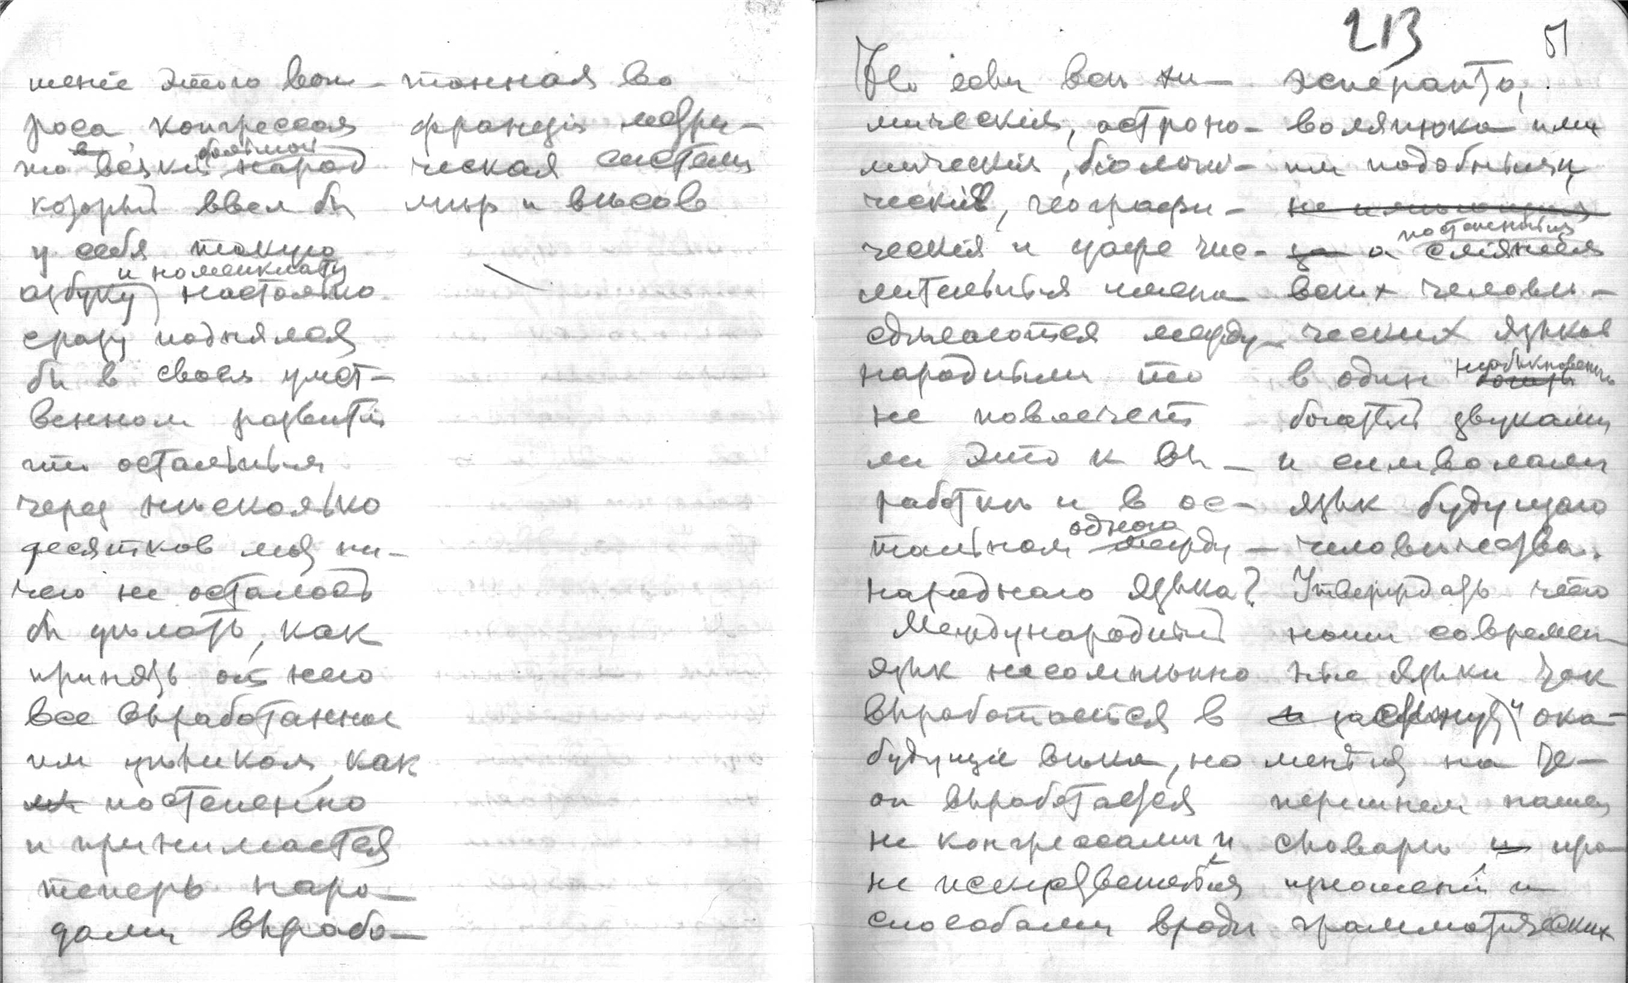 шеніе этого воп-
роса конгрессая
но всякій большой народ
который ввел бы
у себя такую
азбуку и номенклату
настоялько
сразу поднялся
бы в своем умст-
венном развитіи
что остальныя
через нѣсколько
десятков лѣт ни-
чего не осталось
бы дѣлать, как
принять от него
все выработанное
им цѣликом, как
постепенно
и принимается
теперь наро-
дами вырабо-
танная во
франціи метри-
ческая система
мѣр и вѣсов
213
51
Но если всѣ хи-
мическія, астроно-
мическія, біологи-
ческія, географи-
ческія и даже чис-
лительныя имена
сдѣлаются между-
народными то
не повлечет
ли это к вы-
работкѣ и в ос-
тальном одного между-
народного языка?
Международный
язык несомнѣнно
выработается в
будущіе вѣка, но
он выработается
не конгрессами и
не искусственными
способами вродѣ
эсперанто,
волапюка или
им подобными,
не имѣющими
а постепенным сліяніем
всѣх человѣ-
ческих языков
в один необыкновенно
богатый звуками
и символами
язык будущаго
человѣчества.
Утверждать что
наши современ-
ные языки так
и застынут, ока-
менѣв на те-
перешнем нашем
словарѣ и про-
изношеніи и
грамматических